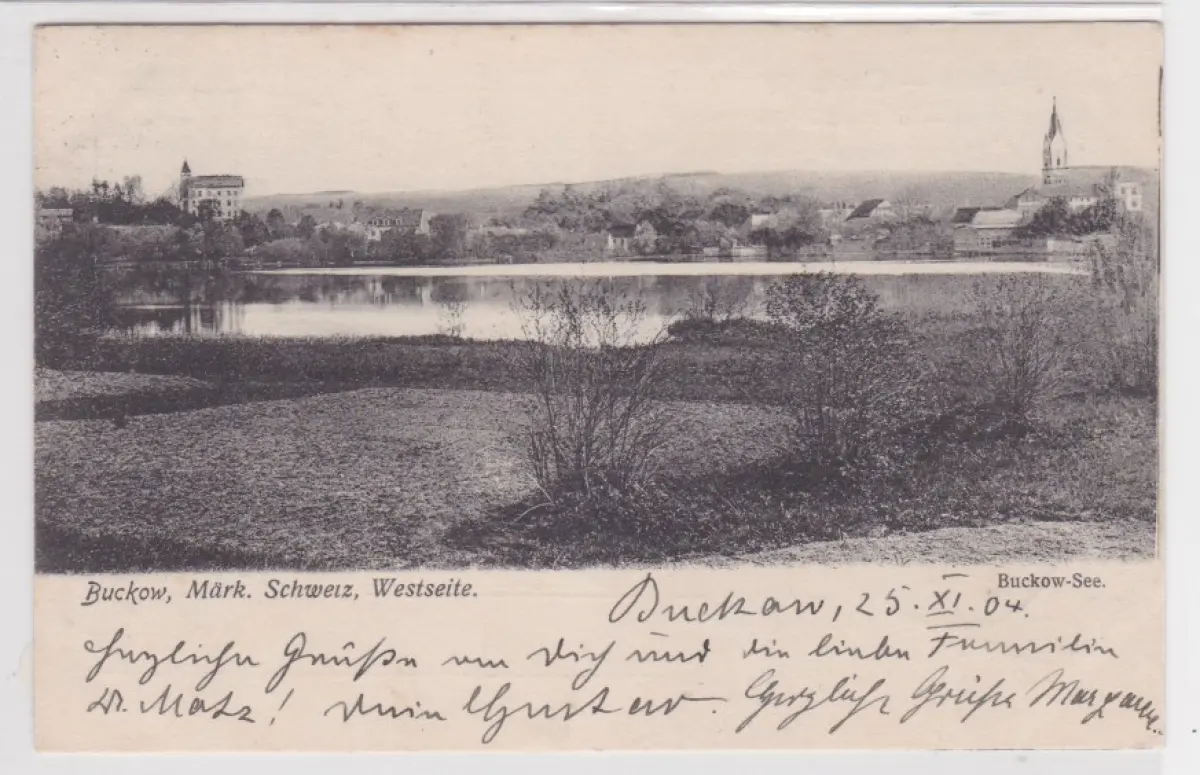 Buckow, Märk. Schweiz, Westseite.
Buckow-See.
Buckow, 25. XI. 04.
Herzliche Grüße an Dich und die liebe Familie
Matz! Dein Gustav. Herzliche Grüße